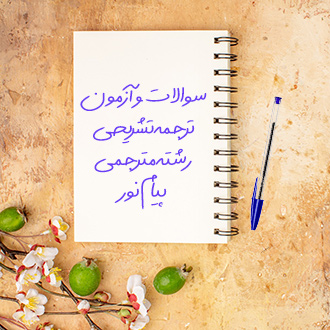 سوالات و آزمون
ترجمه تشریحی
رشته مترجمی
پیام نور